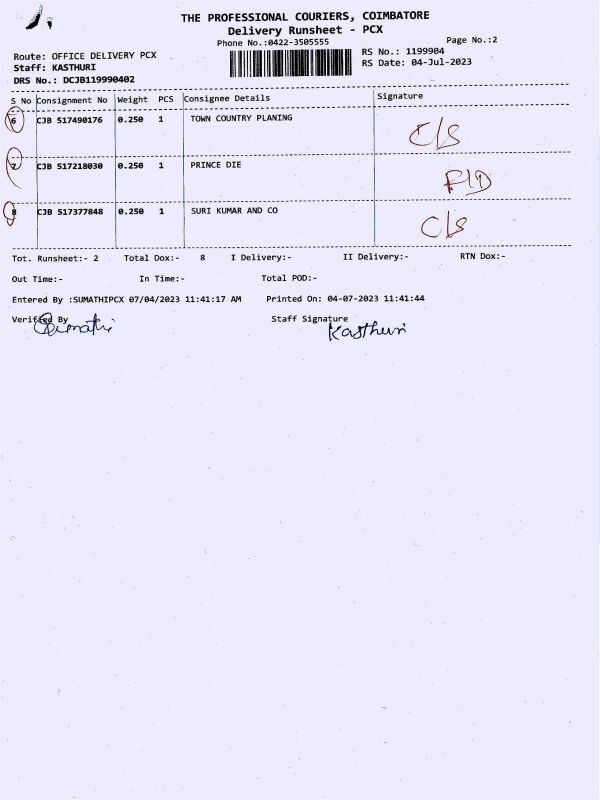 THE PROFESSIONAL COURIERS, COIMBATORE
Delivery Runsheet - PCX
Phone No.:0422-3505555 Page No.:2
Route: OFFICE DELIVERY PCX RS No.: 1199904
Staff: KASTHURI RS Date: 04-Jul-2023
DRS No.: DCJB119990402
S No Consignment No Weight PCS Consignee Details Signature
6 CJB 517490176 0.250 1 TOWN COUNTRY PLANING C/S
7 CJB 517218030 0.250 1 PRINCE DIE F/D
8 CJB 517377848 0.250 1 SURI KUMAR AND CO C/S
Tot. Runsheet:- 2 Total Dox:- 8 I Delivery:- II Delivery:- RTN Dox:-
Out Time:- In Time:- Total POD:-
Entered By :SUMATHIPCX 07/04/2023 11:41:17 AM Printed On: 04-07-2023 11:41:44
Verified By Staff Signature
Sumathi Kasthuri